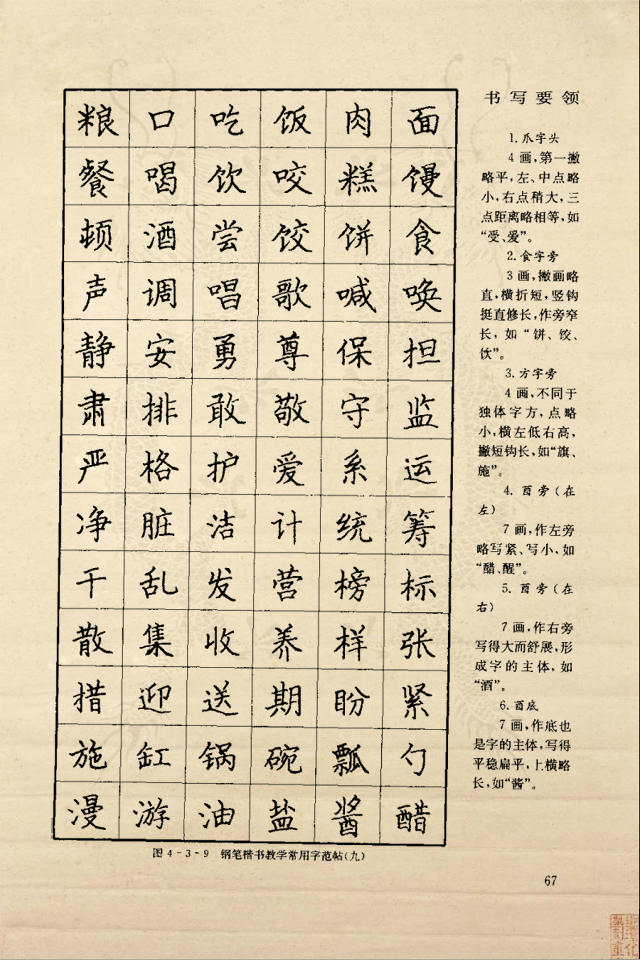 粮口吃饭肉面
餐喝饮咬糕馒
顿酒尝饺饼食
声调唱歌喊唤
静安勇尊保担
肃排敢敬守监
严格护爱系运
净脏洁计统筹
干乱发营榜标
散集收养样张
措迎送期盼紧
施缸锅碗瓢勺
漫游油盐酱醋
图4-3-9 钢笔楷书教学常用字范帖(九)
书写要领
1.爪字头
4画,第一撇
略平,左、中点略
小,右点稍大,三
点距离略相等,如
“受、爱”。
2.食字旁
3画,撇画略
直,横折短,竖钩
挺直修长,作旁窄
长,如“饼、饺、
饮”。
3.方字旁
4画,不同于
独体字方,点略
小,横左低右高,
撇短钩长,如“旗、
施”。
4.酉旁(在
左)
7画,作左旁
略写紧、写小,如
“醋、醒”。
5.酉旁(在
右)
7画,作右旁
写得大而舒展,形
成字的主体,如
“酒”。
6.酉底
7画,作底也
是字的主体,写得
平稳扁平,上横略
长,如“酱”。
67